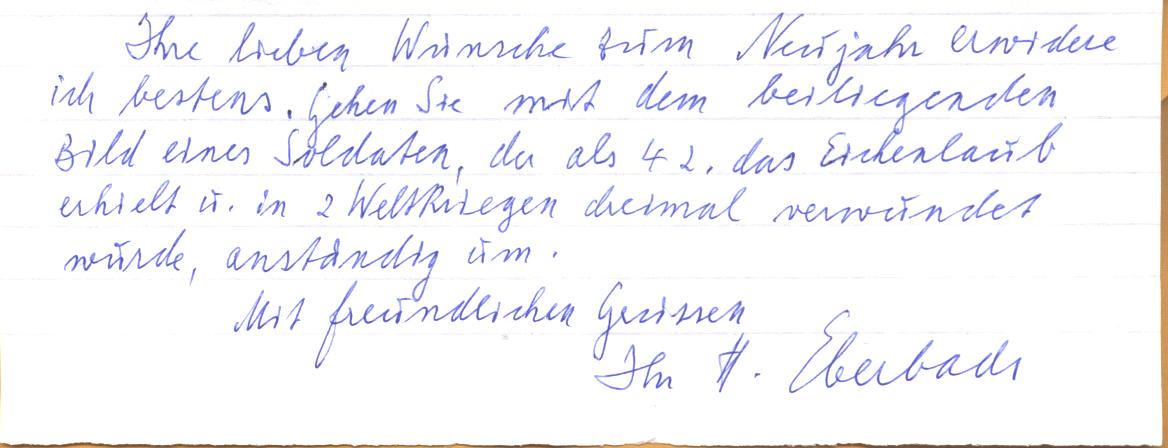 Ihre lieben Wünsche zum Neujahr erwidere
ich bestens. Gehen Sie mit dem beiliegenden
Bild eines Soldaten, der als 42. das Eichenlaub
erhielt u. in 2 Weltkriegen dreimal verwundet
wurde, anständig um.
Mit freundlichen Grüssen
Ihr H. Eberbach